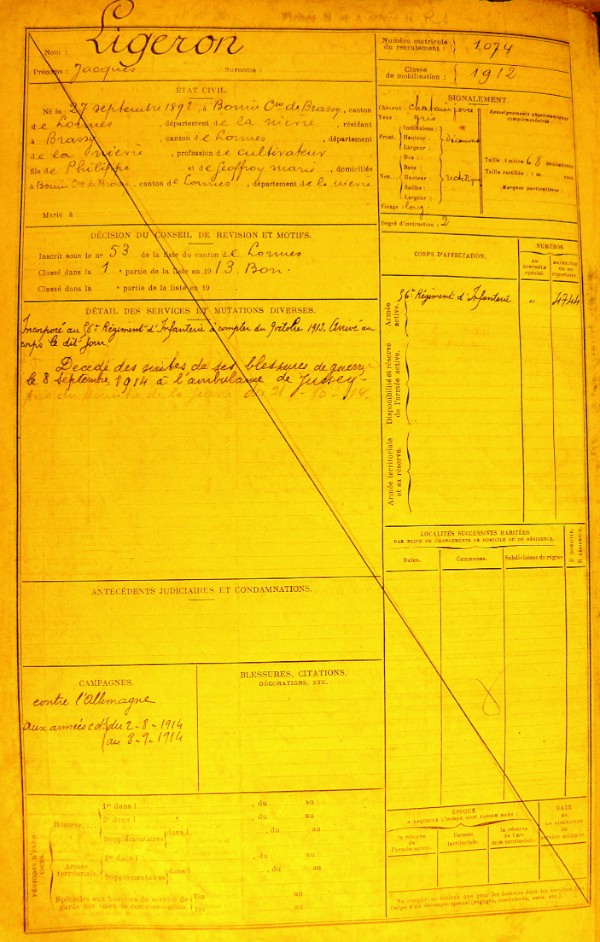 Nom : Ligeron
Prénoms : Jacques Surnoms :
Numéro matricule du recrutement : 1074
Classe de mobilisation : 1912
ÉTAT CIVIL.
Né le 27 septembre 1892, à Bonnis Cne de Brassy, canton
de Lormes, département de la nièvre, résidant
à Brassy, canton de Lormes, département
de la nièvre, profession de cultivateur
fils de Philippe et de Geoffroy marie, domiciliés
à Bonnis Cne de Brassy, canton de Lormes, département de la nièvre
Marié à
SIGNALEMENT.
Cheveux :
Yeux : gris
Front. Inclinaison :
Hauteur : Découvert
Largeur :
Nez. Dos :
Base :
Hauteur : rectiligne
Saillie :
Largeur :
Visage : long
Renseignements physionomiques complémentaires :
Taille : 1 mètre 68 centimètres.
Taille rectifiée : 1 m.
Marques particulières :
Degré d'instruction : 2
DÉCISION DU CONSEIL DE REVISION ET MOTIFS.
Inscrit sous le no 53 de la liste du canton de Lormes
Classé dans la 1 e partie de la liste en 1913. Bon.
Classé dans la e partie de la liste en 19
DÉTAIL DES SERVICES ET MUTATIONS DIVERSES.
Incorporé au 56e Régiment d'Infanterie à compter du 9 octobre 1913. Arrivé au
corps le dit jour
Décédé des suites de ses blessures de guerre
le 8 septembre 1914 à l'ambulance de Jussey.
Avis du ministre de la guerre du 21-10-14.
CORPS D'AFFECTATION.
NUMÉROS
au contrôle spécial.
au répertoire.
Armée active.
56e Régiment d'Infanterie " 4744
Disponibilité et réserve de l'armée active.
Armée territoriale et sa réserve.
LOCALITÉS SUCCESSIVES HABITÉES
PAR SUITE DE CHANGEMENTS DE DOMICILE OU DE RÉSIDENCE.
Dates. Communes. Subdivisions de région. D. DOMICILE. R. RÉSIDENCE.
ANTÉCÉDENTS JUDICIAIRES ET CONDAMNATIONS.
CAMPAGNES.
contre l'Allemagne
aux armées du 2-8-1914
au 8-9-1914
BLESSURES, CITATIONS,
DÉCORATIONS, ETC.
PÉRIODES D'EXERCICES.
Réserve.
1re dans l , du au
2e dans l , du au
Supplémentaires dans l , du au
Armée territoriale.
1re dans l , du au
Supplémentaires dans l , du au
Spéciales aux hommes du service de garde des voies de communication. Du au
Du au
ÉPOQUE
À LAQUELLE L'HOMME DOIT PASSER DANS :
la réserve de l'armée active.
l'armée territoriale.
la réserve de l'armée territoriale.
DATE
DE LA LIBÉRATION
du service militaire.